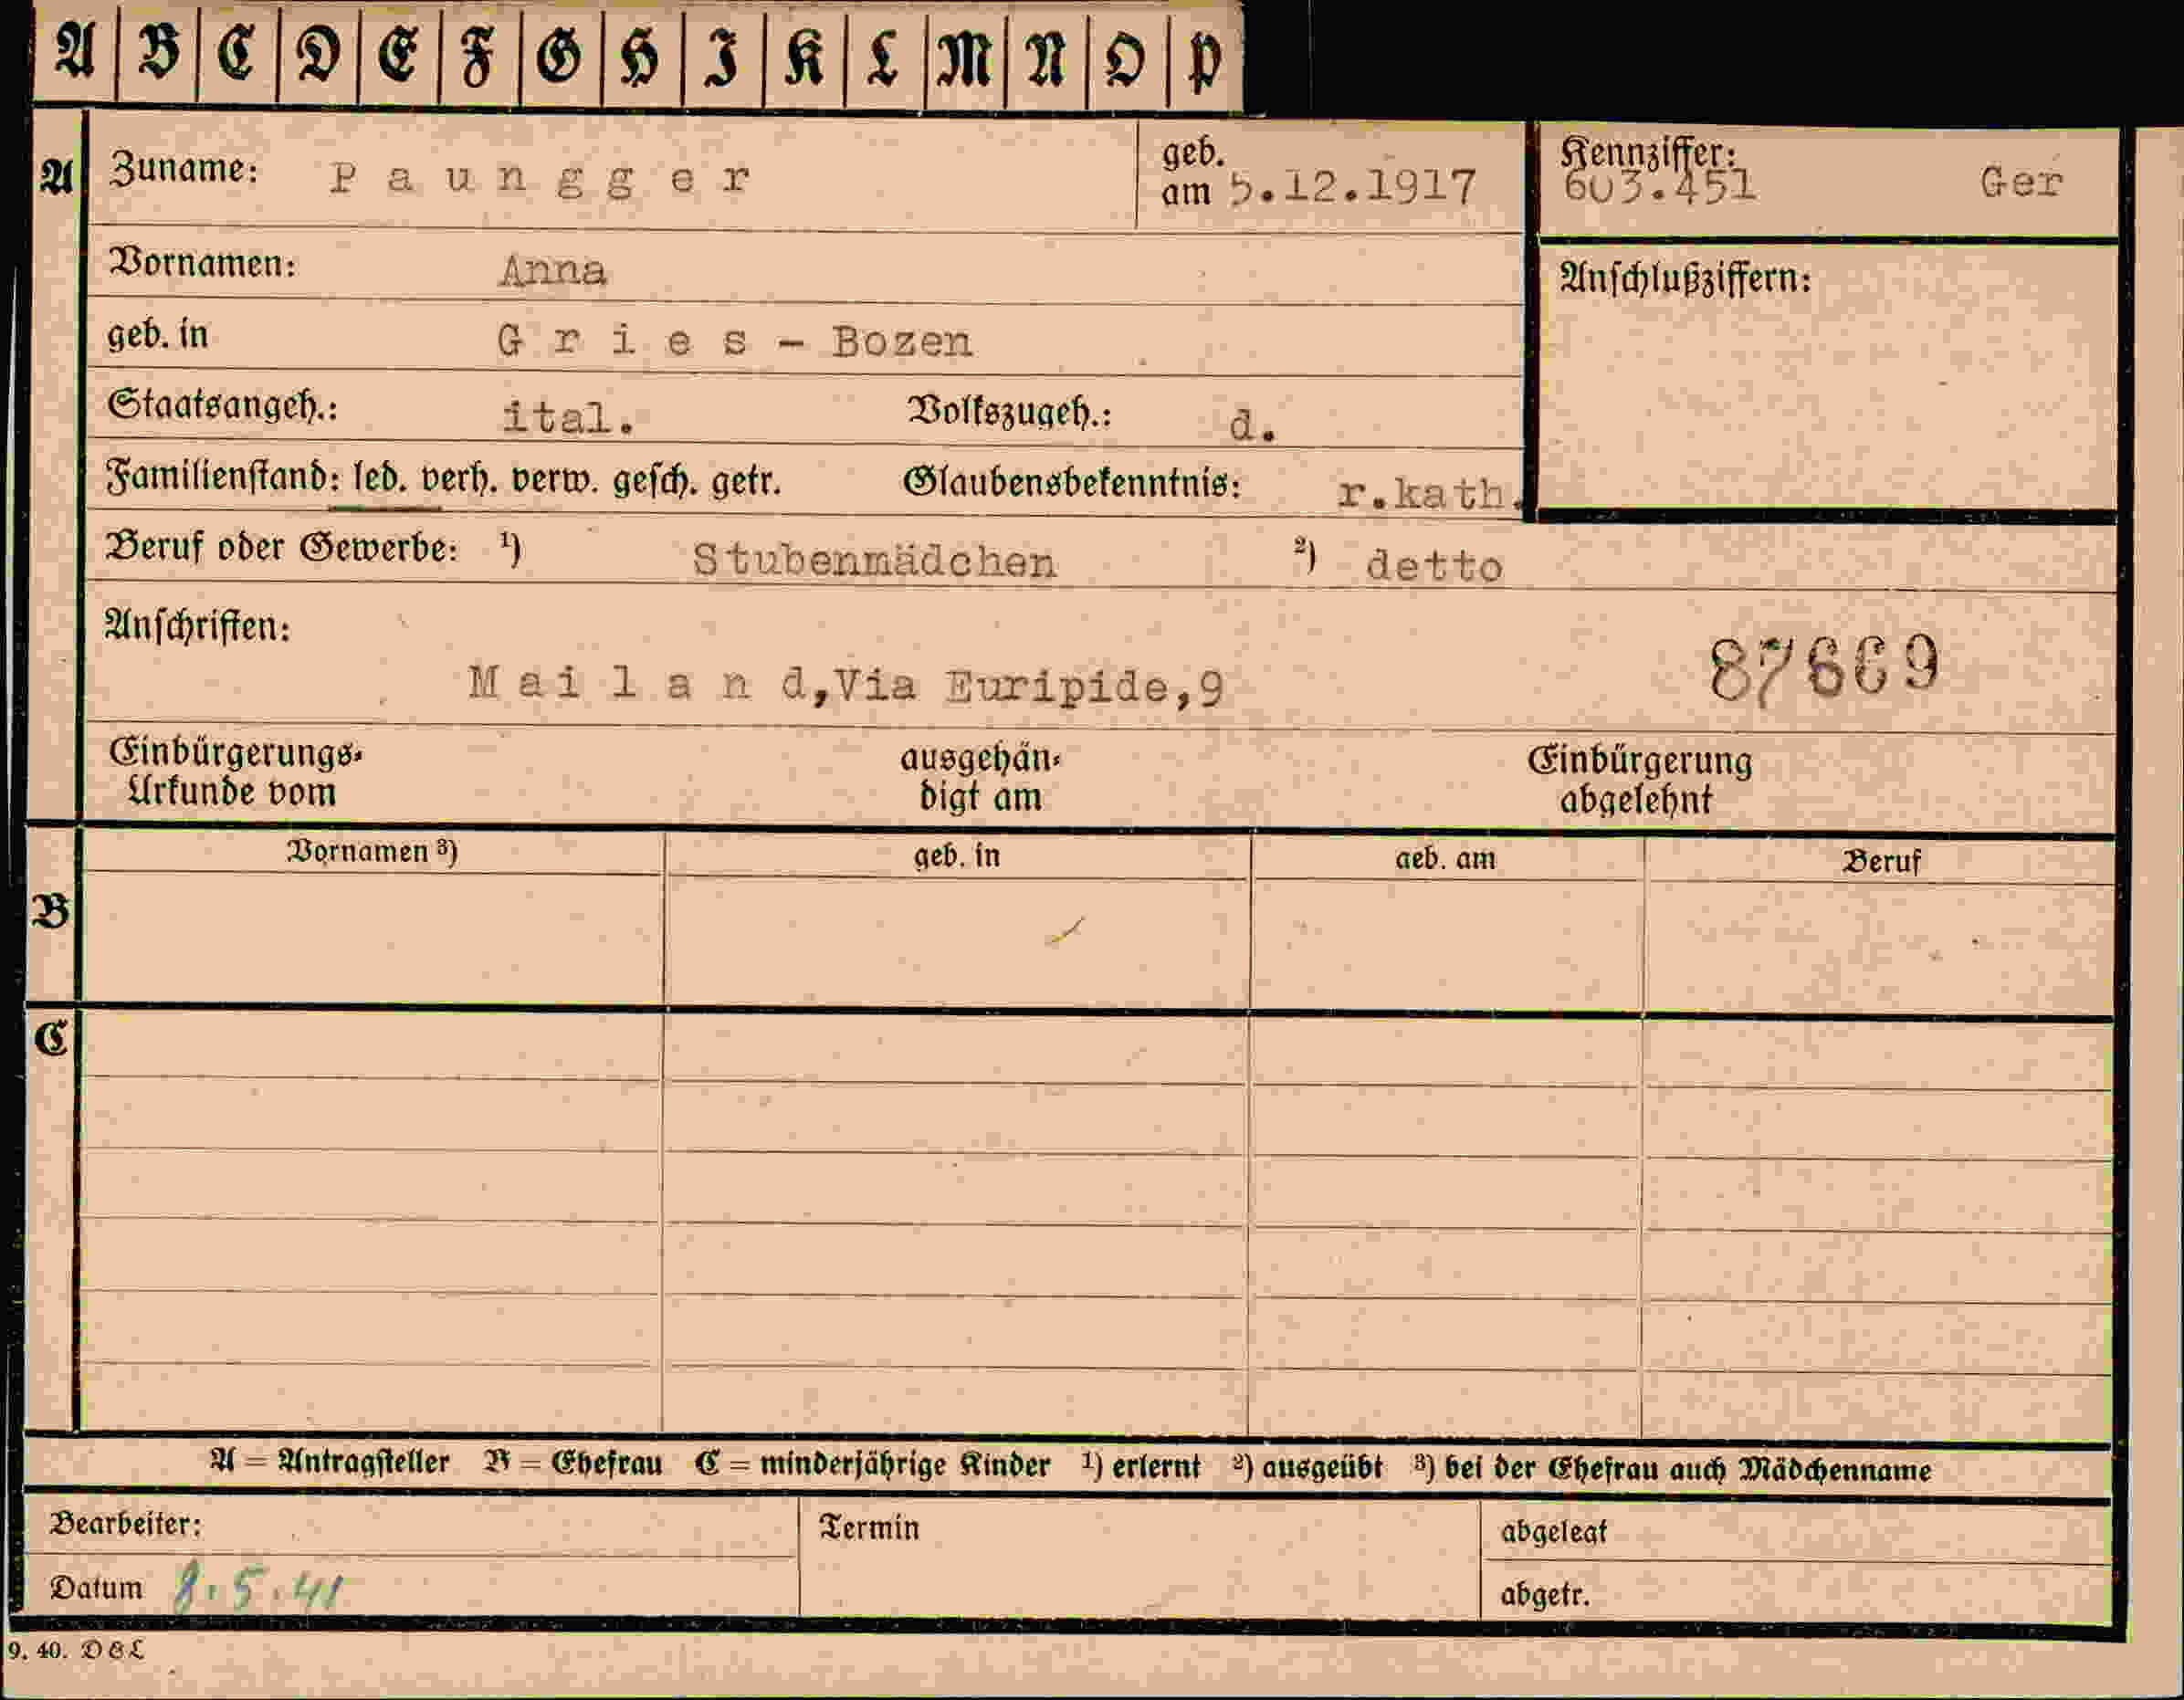 A B C D E F G H I K L M N O P
A Zuname: Paungger geb. am 5.12.1917 Kennziffer: 603.451 Ger
Vornamen: Anna Anschlußziffern:
geb. in Gries - Bozen
Staatsangeh.: ital. Volkszugeh.: d.
Familienstand: led. verh. verw. gesch. getr. Glaubensbekenntnis: r.kath.
Beruf oder Gewerbe: ¹) Stubenmädchen ²) detto
Anschriften:
Mailand,Via Euripide,9 87669
Einbürgerungs- ausgehän- Einbürgerung
Urkunde vom digt am abgelehnt
Vornamen ³) geb. in geb. am Beruf
B
C
A = Antragsteller B = Ehefrau C = minderjährige Kinder ¹) erlernt ²) ausgeübt ³) bei der Ehefrau auch Mädchenname
Bearbeiter: Termin abgelegt
Datum 8.5.41 abgetr.
9. 40. DBL